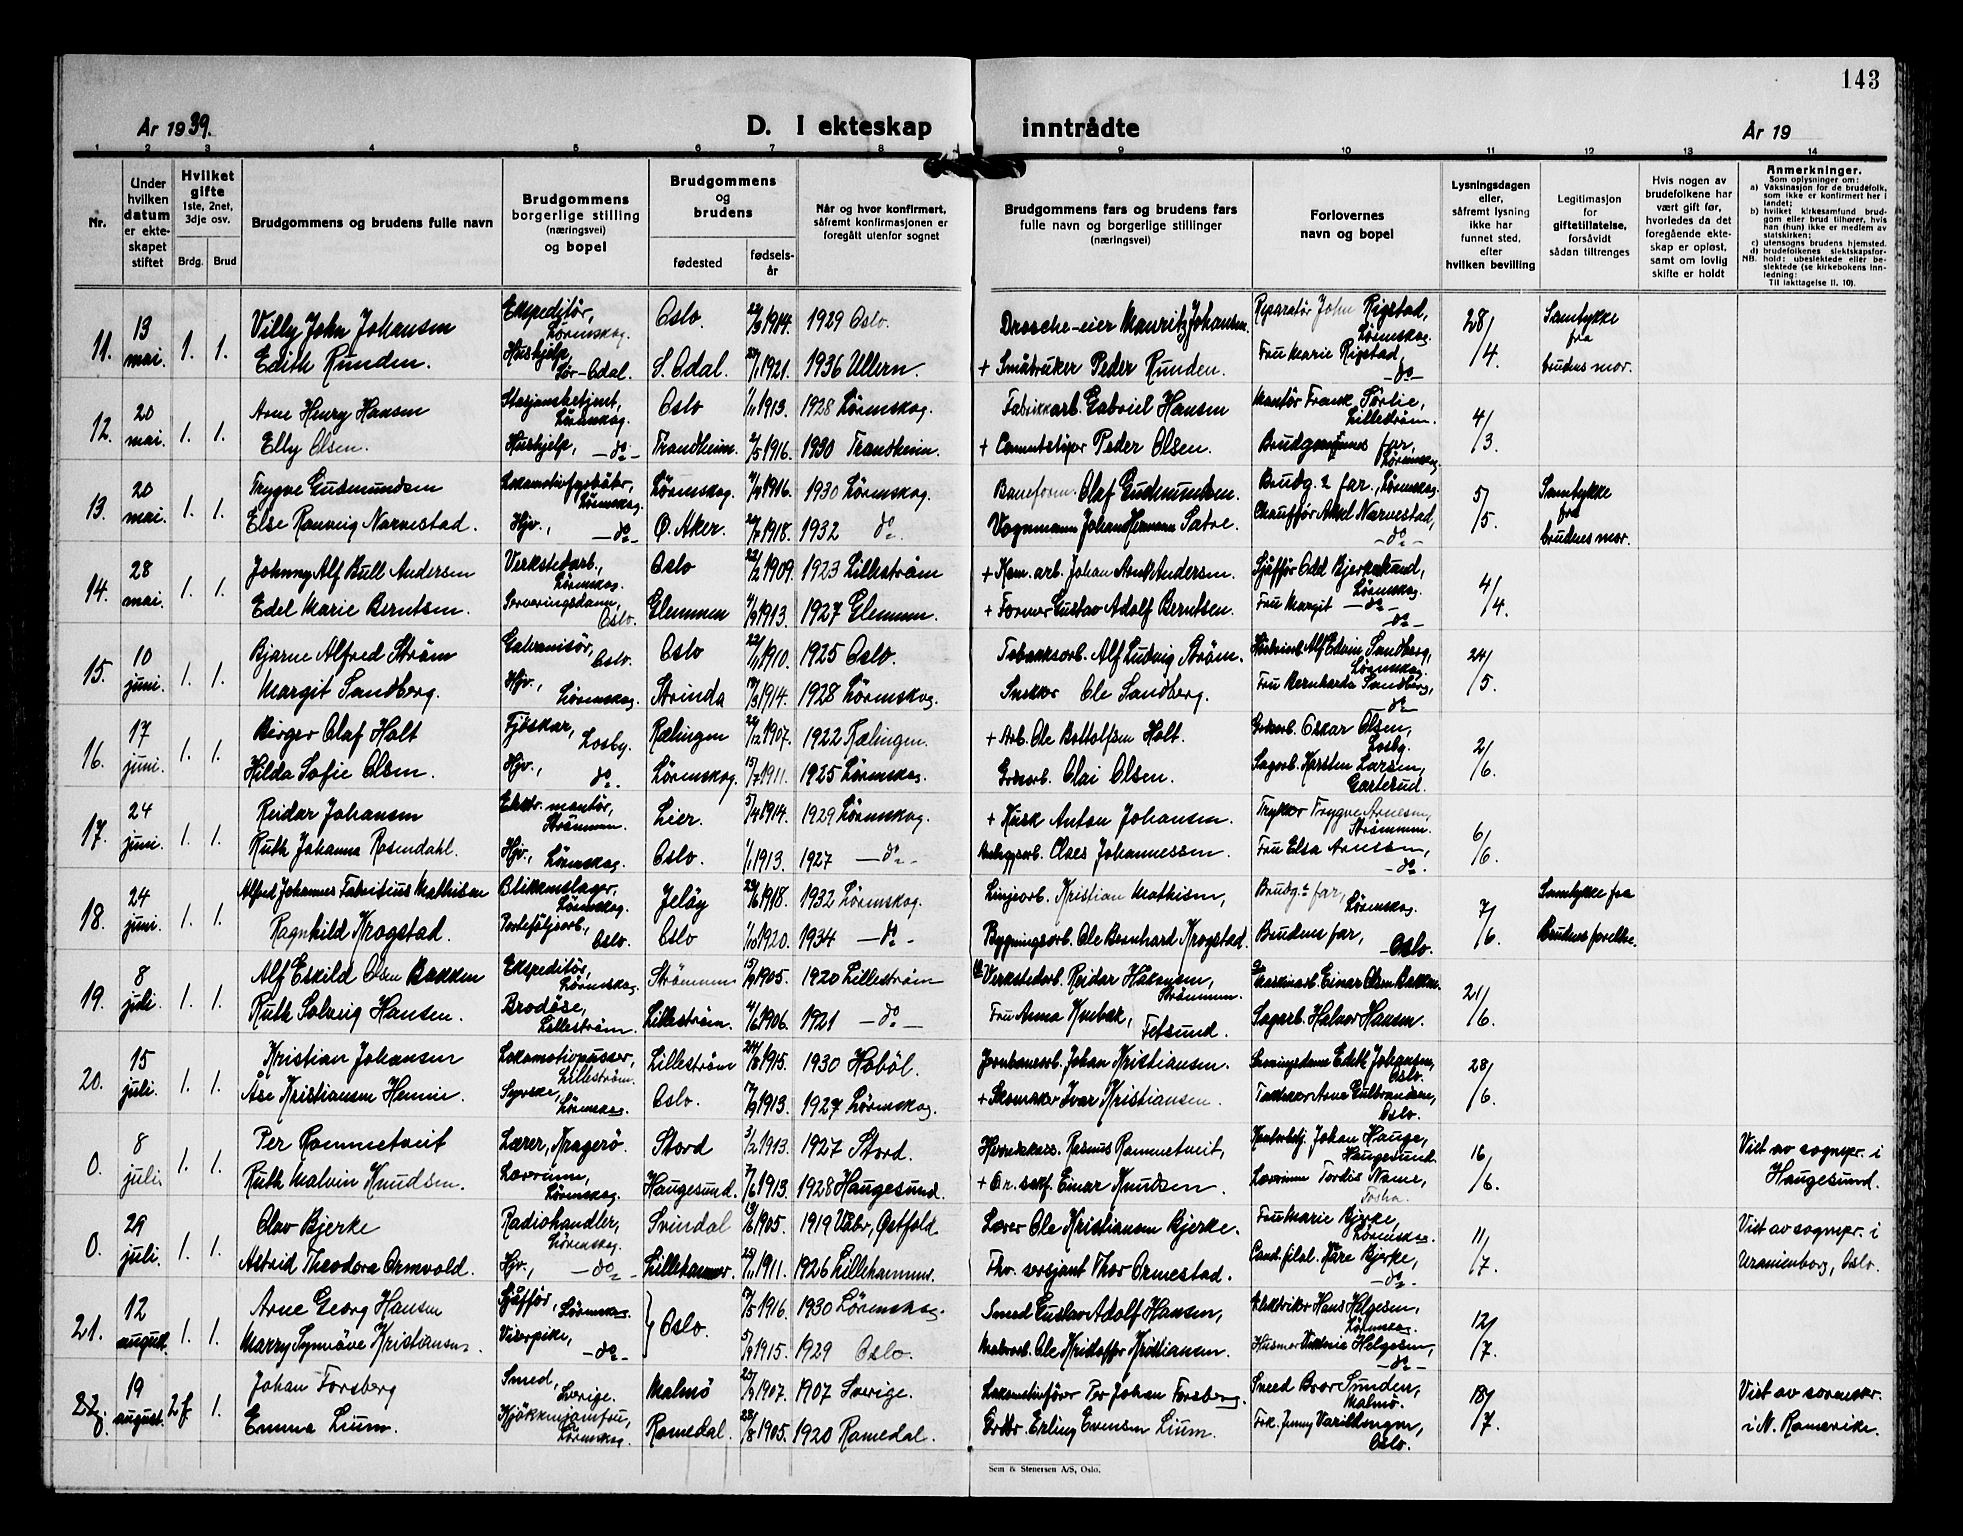 143
År 1939.
D. I ekteskap inntrådte
År 19
1 2 3 4 5 6 7 8 9 10 11 12 13 14
Nr.
Under hvilken datum er ekteskapet stiftet
Hvilket gifte 1ste, 2net, 3dje osv.
Brdg. Brud
Brudgommens og brudens fulle navn
Brudgommens borgerlige stilling (næringsvei) og bopel
Brudgommens og brudens
fødested
fødselsår
Når og hvor konfirmert, såfremt konfirmasjonen er foregått utenfor sognet
Brudgommens fars og brudens fars fulle navn og borgerlige stillinger (næringsvei)
Forlovernes navn og bopel
Lysningsdagen eller, såfremt lysning ikke har funnet sted, efter hvilken bevilling
Legitimasjon for giftetillatelse, forsåvidt sådan tiltrenges
Hvis nogen av brudefolkene har vært gift før, hvorledes da det foregående ekteskap er opløst, samt om lovlig skifte er holdt
Anmerkninger.
Som oplysninger om:
a) Vaksinasjon for de brudefolk, som ikke er konfirmert her i landet;
b) hvilket kirkesamfund brudgom eller brud tilhører, hvis han (hun) ikke er medlem av statskirken;
c) utensogns brudens hjemsted.
d) brudefolkenes slektskapsforhold: ubeslektede eller beslektede (se kirkebokens Innledning:
NB. Til iakttagelse II. 10).
11. 13 mai. 1. 1. Villy John Johansen Ekspeditör, Lörenskog. Oslo. 1914. 1929 Oslo. Drosche-eier Mauritz Johansen. Reparatör John Rigstad, Lörenskog. 28/4 Samtykke fra brudens mor.
Edith Runden. Hushjelp, Sør-Odal. S. Odal. 1921. 1936 Ullern. + Småbruker Peder Runden. Fru Marie Rigstad, -do-
12. 20 mai. 1. 1. Arne Henry Hansen Stasjonsbetjent, Lörenskog. Oslo 1913. 1928 Lörenskog. Fabrikkarb. Gabriel Hansen Montör Frank Sörlie, Lilleström. 4/3
Elly Olsen. Hushjelp, -do- Trondheim. 2/5 1916. 1930 Trondheim. + Peder Olsen. Brudgommens far, Lörenskog.
13. 20 mai. 1. 1. Trygve Gudmundsen Lörenskog. Lörenskog. 1916. 1930 Lörenskog. Baneform. Olaf Gudmundsen. Brudg.s far, Lörenskog. 5/5 Samtykke fra brudens mor.
Else Ranveig Narvestad. Hjv., -do- Ö. Aker. 1918. 1932 do. Vognmann Johan Hermann Sætre. Chauffør Aksel Narvestad, -do-
14. 28 mai. 1. 1. Johnny Alf Bull Andersen Verkstedarb., Lörenskog. Oslo 22/2 1909. 1923 Lilleström + Kom. arb. Johan Andersen. Sjåfför Odd Bjerkelund, Lörenskog. 4/4.
Edel Marie Berntsen. Serveringsdame, Oslo. Glemmen 1913. 1927 Glemmen. + Former Gustav Adolf Berntsen. Fru Margit -do- -do-
15. 10 juni. 1. 1. Bjarne Alfred Ström Galvanisör, Oslo. Oslo 1910. 1925 Oslo. Tobakksarb. Alf Ludvig Ström. Alf Edvin Sandberg, Lörenskog. 24/5.
Margit Sandberg. Hjv., Lörenskog. Strinda 1914. 1928 Lörenskog. Snekker Ole Sandberg. Fru Bernharda Sandberg, -do-
16. 17 juni. 1. 1. Birger Olaf Holt Fjöskar, Losby. Rælingen 1907. 1922 Rælingen. + Arb. Ole Bottolfsen Holt. Gårdsarb. Oskar Olsen, Losby. 2/6.
Hilda Sofie Olsen. Hjv., do. Lörenskog. 15/7 1911. 1925 Lörenskog. Gårdsarb. Olai Olsen. Sagarb. Karsten Larsen, Gartesud.
17. 24 juni. 1. 1. Reidar Johansen Elektr. montör, Strömmen. Lier. 5/4 1914. 1929 Lörenskog. + Kusk Anton Johansen. Trykker Trygve Arnesen, Strömmen. 6/6.
Ruth Johanna Rosendahl. Hjv., Lörenskog. Oslo. 1/1 1913. 1927 -do- Anleggsarb. Claes Johannessen. Fru Elsa Arnesen, -do-
18. 24 juni. 1. 1. Alfred Johannes Fabritius Mathisen Blikkenslager, Lörenskog. Jelöy 1918. 1932 Lörenskog. Linjearb. Kristian Mathisen, Brudg.s far, Lörenskog. 7/6. Samtykke fra
Ragnhild Krogstad. Porteföljearb., Oslo. Oslo 1/10 1920. 1934 -do- Bygningsarb. Ole Bernhard Krogstad. Brudens far, Oslo. Brudens forelre.
19. 8 juli. 1. 1. Alf Eskild Olsen Bakken Ekspeditör, Lörenskog. Strömmen 1905. 1920 Lilleström Verkstedarb. Reidar Håkonsen, Strömmen. Maskinarb. Einar Olsen Bakken. 21/6.
Ruth Solveig Hansen. Brodöse, Lilleström. Lilleström. 4/6 1906. 1921 -do- Fru Anna Kvebæk, Fetsund. Sagarb. Halvor Hansen.
20. 15 juli. 1. 1. Kristian Johansen Lokomotivpusser, Lilleström. Lilleström 24/8 1915. 1930 Hobøl. Jernbanearb. Johan Kristiansen. Serveringsdame Edith Johansen, Oslo. 28/6.
Åse Kristiansen Hennie. Syerske, Lörenskog. Oslo. 1913. 1927 Lörenskog. + Skomaker Ivar Kristiansen. Arne Gulbrandsen, Oslo.
0. 8 juli. 1. 1. Per Rommetveit Lærer, Kragerö. Stord 3/2 1913. 1927 Stord. Rasmus Rommetveit, Kontorbetj. Johan Hauge, Haugesund. 16/6. Viet av sognepr. i Haugesund.
Ruth Malvin Knudsen. Lærerinne, Lörenskog. Haugesund. 7/6 1913. 1928 Haugesund. + Or. sakf. Einar Knudsen. Lærerinne Tordis Name,
0. 29 juli. 1. 1. Olav Bjerke Radiohandler, Lörenskog. Svindal 1905. 1919 Våler, Østfold Lærer Ole Kristiansen Bjerke. Fru Marie Bjerke, Lörenskog. 11/7. Viet av sognepr. i
Astrid Theodora Ormvold. Hjv., -do- Lillehammer. 1911. 1926 Lillehammer. Fhv. sersjant Thor Ormestad. Cand. filol. Kåre Bjerke, -do- Uranienborg, Oslo.
21. 12 august. 1. 1. Arne Georg Hansen Sjåför, Lörenskog } Oslo. 1916. 1930 Lörenskog. Smed Gustav Adolf Hansen, Elektriker Hans Helgesen, Lörenskog. 12/7.
Marry Synnöve Kristiansen. Viserpike, -do- 1915. 1929 Oslo. Malerarb. Ole Kristoffer Kristiansen. Husmor Viktoria Helgesen, -do-
22. 19 august. 2f. 1. Johan Forsberg Smed, Sverige. Malmö 1907. 1907 Sverige. Lokomotivförer Per Johan Forsberg. Smed Bror Sunden, Malmö. 18/7. Viet av sorenskr.
Emma Lium. Kjökkenjomfru, Lörenskog. Romedal. 1905. 1920 Romedal. Erling Evensen Lium. Frk. Jenny Oslo. i N. Romerike.
Sem & Stenersen A/S, Oslo.